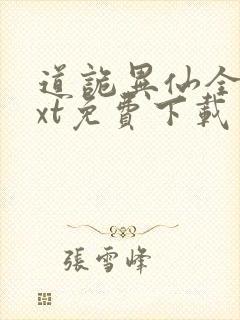 道詭異仙全
xt免費下載
張雪峰